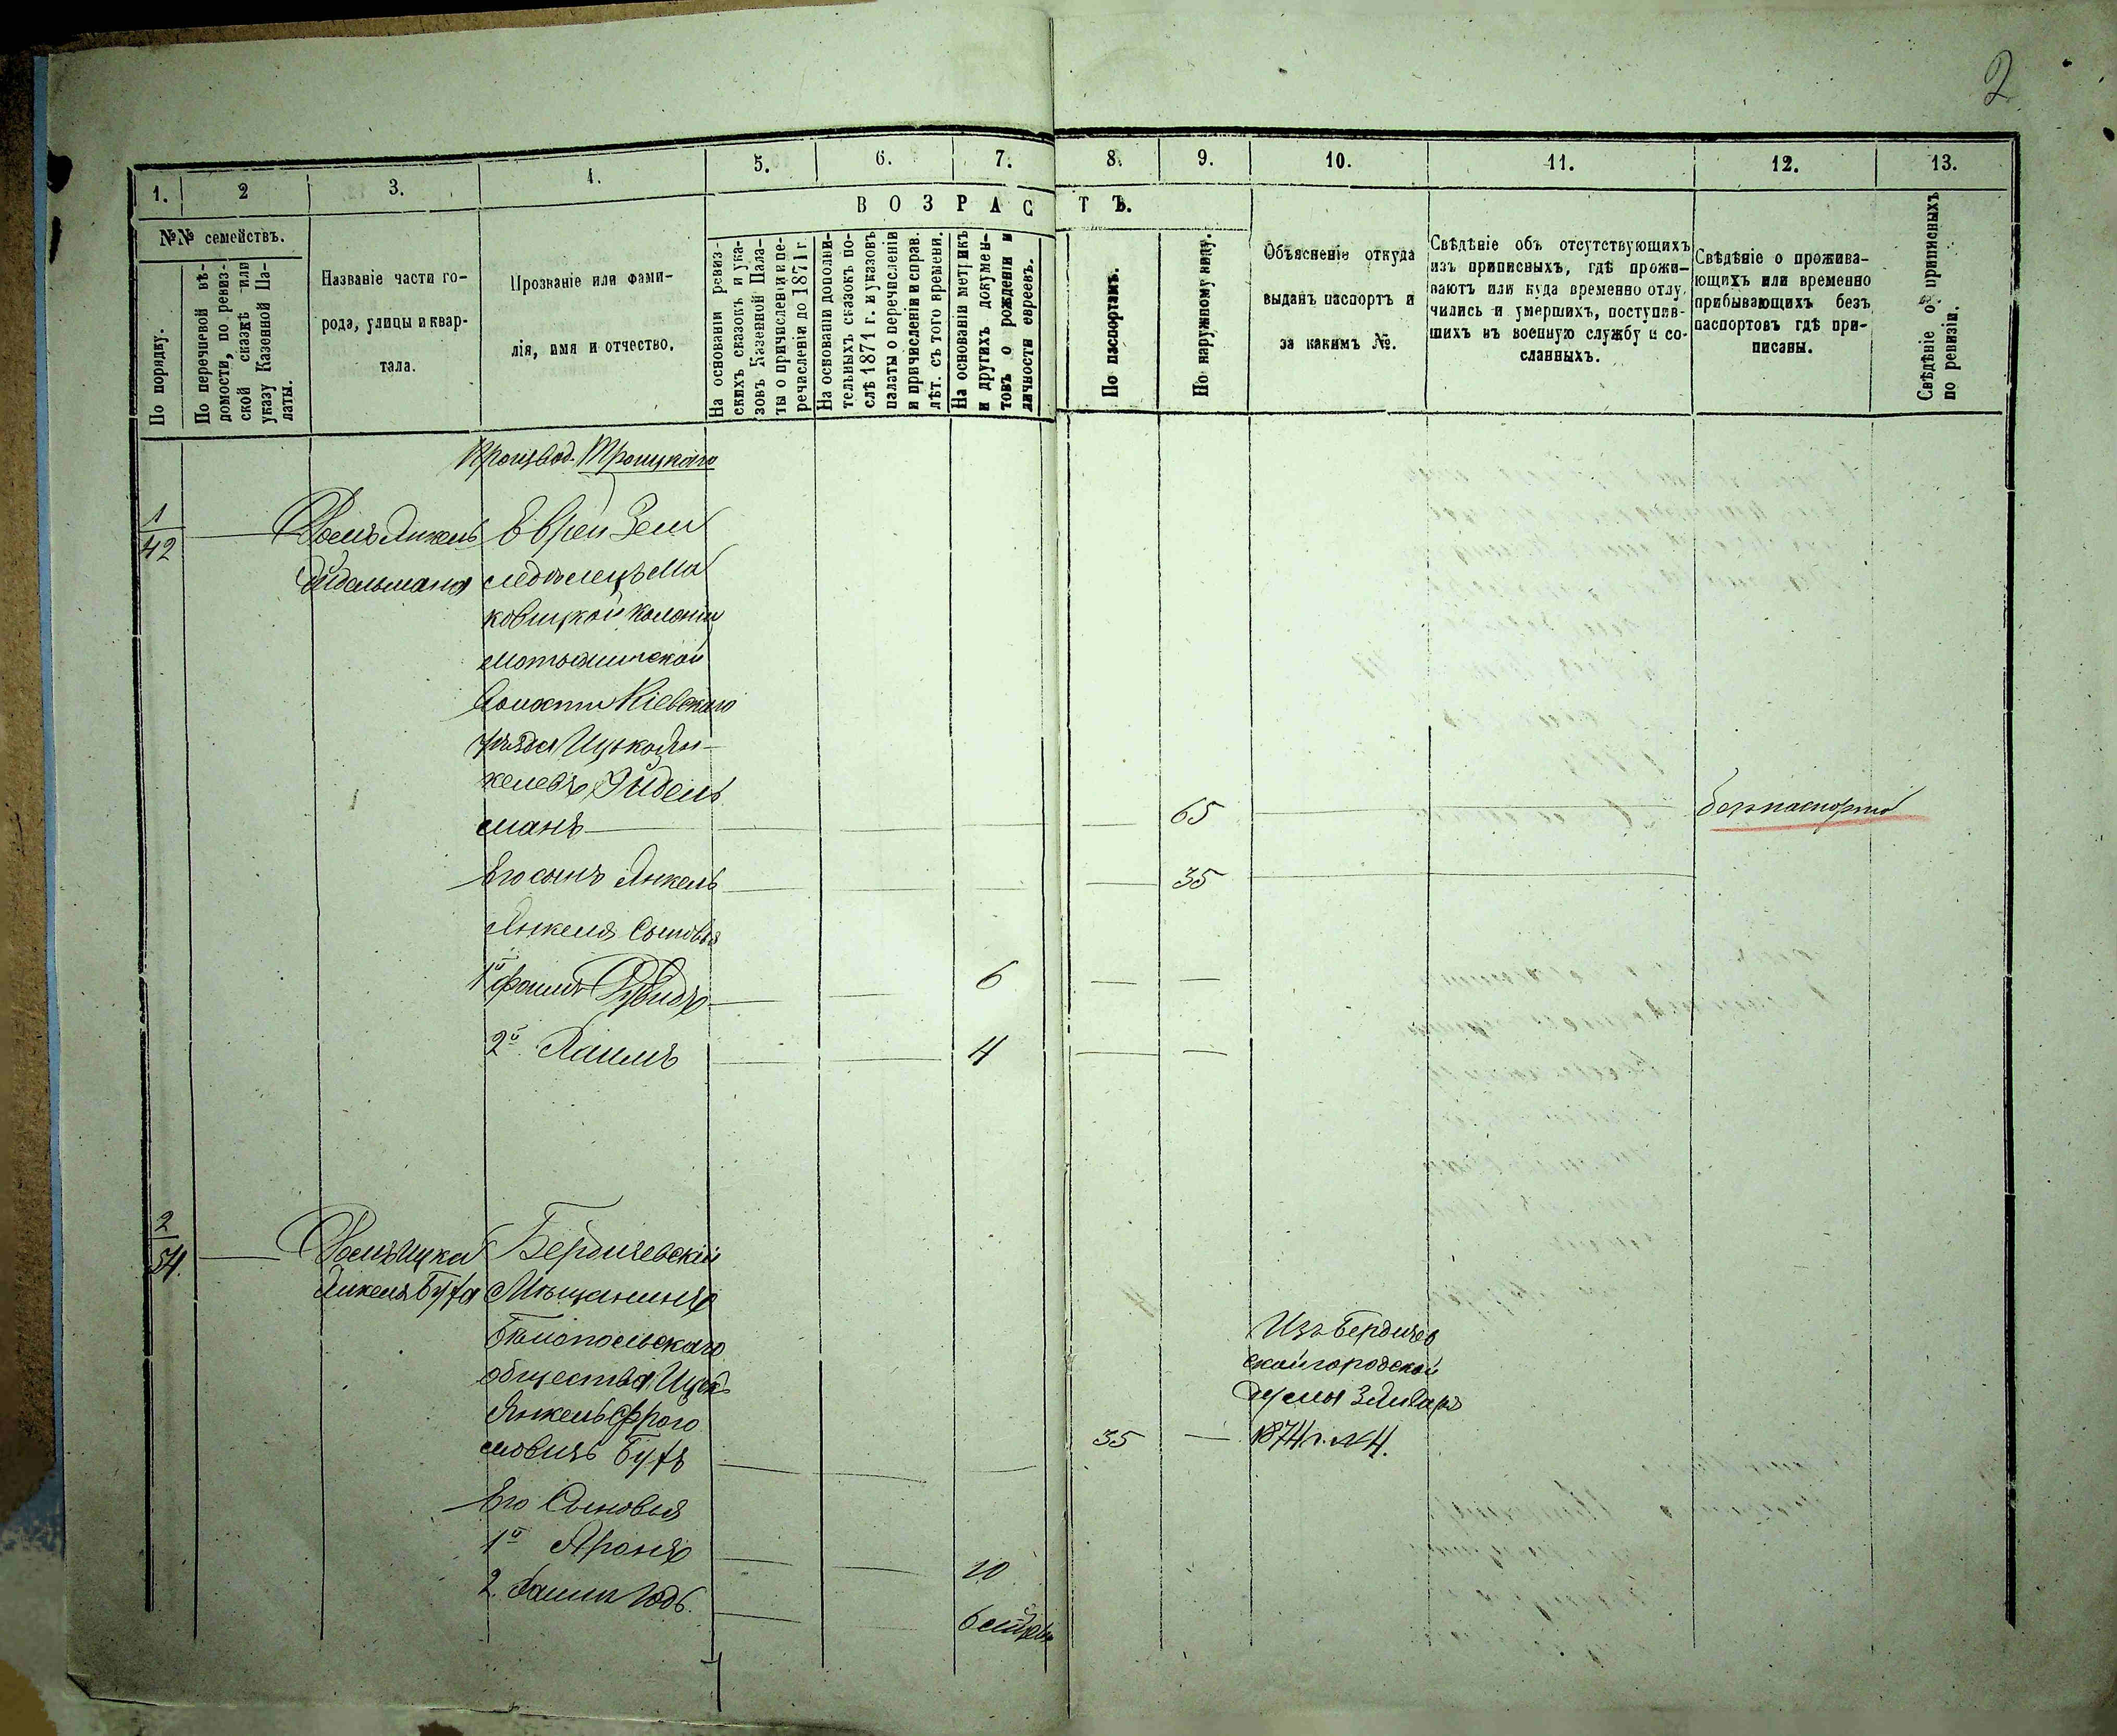 2
1.
2
3.
4.
5.
6.
7.
8.
9.
10.
11.
12.
13.
№№ семействъ.
ВОЗРАСТЪ.
По порядку.
По перечневой вѣ-
домости, по ревиз-
ской сказкѣ или
указу Казенной Па-
латы.
Названіе части го-
рода, улицы и квар-
тала.
Прозваніе или фами-
лія, имя и отчество.
На основаніи ревиз-
скихъ сказокъ и ука-
зовъ Казенной Пала-
ты о причисленіи и пе-
речисленіи до 1871 г.
На основаніи дополни-
тельныхъ сказокъ по-
слѣ 1871 г. и указовъ
палаты о перечисленіи
и причисленіи и справ.
лѣт. съ того времени.
На основаніи метрикъ
и другихъ докумен-
товъ о рожденіи и
личности евреевъ.
По паспортамъ.
По наружному виду.
Объясненіе откуда
выданъ паспортъ и
за какимъ №.
Свѣдѣніе объ отсутствующихъ
изъ приписныхъ, гдѣ прожи-
ваютъ или куда временно отлу-
чились и умершихъ, поступив-
шихъ въ военную службу и со-
сланныхъ.
Свѣдѣніе о прожива-
ющихъ или временно
прибывающихъ безъ
паспортовъ гдѣ при-
писаны.
Свѣдѣніе о приписныхъ
по ревизіи.
Производ. Троицкаго
1
42
Домъ Янкель
Эйдельмана
Еврей Зем
ледѣлецъ Ма
ковицкой колоніи
Мотыжинской
Волости Кіевскаго
уѣзда Ицько Ян-
келевъ Эйдель
манъ
65
безъ паспорта
Его сынъ Янкель
35
Янкеля Сыновья
1й
6
2й Хаимъ
4
2
54.
Домъ Ицка
Янкеля Буфа
Бердичевскій
Мѣщанинъ
Бѣлопольскаго
общества Ицко
Янкель Фрого
мовичъ Буфъ
35
Изъ Бердичев
ской городской
думы 3 Января
1874 г. № 4.
Его Сыновья
1й Аронъ
10
2.
6